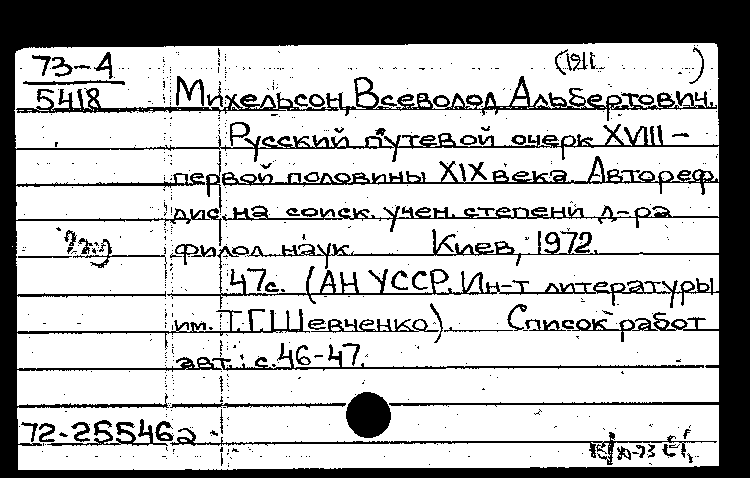 73-4
5418
(1911 )
Михельсон, Всеволод Альбертович.
Русский путевой очерк XVIII –
первой половины XIX века. Автореф.
дис. на соиск. учен. степени д-ра
филол. наук. Киев, 1972.
47с. (АН УССР. Ин-т литературы
им. Т.Г.Шевченко). Список работ
авт.: с.46-47.
72-25546а